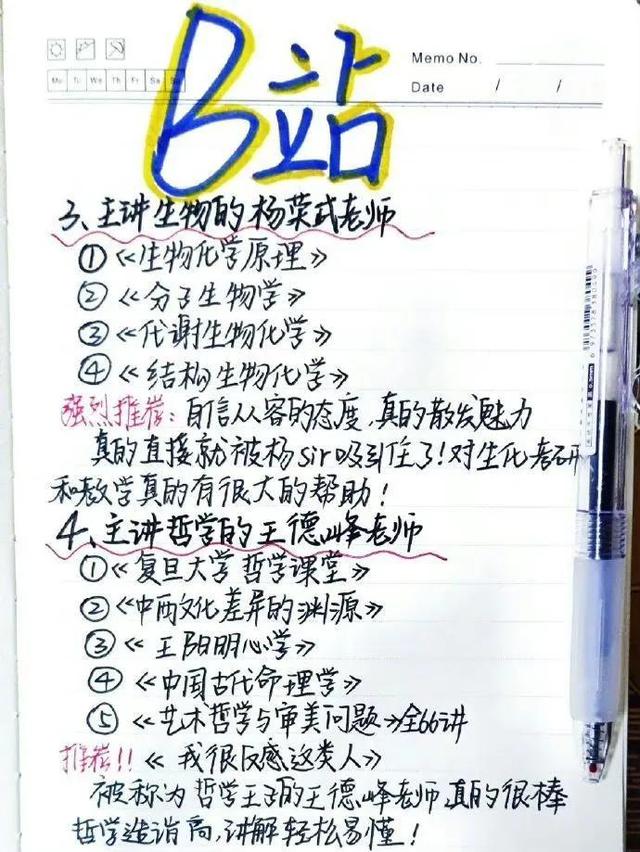 B站
Memo No.
Mo Tu We Th Fr Sa Su
Date / /
3、主讲生物的杨荣武老师
①《生物化学原理》
②《分子生物学》
③《代谢生物化学》
④《结构生物化学》
强烈推荐：自信从容的态度，真的散发魅力
真的直接就被杨sir吸引住了！对生化考研
和教学真的有很大的帮助！
4、主讲哲学的王德峰老师
①《复旦大学哲学课堂》
②《中西文化差异的渊源》
③《王阳明心学》
④《中国古代命理学》
⑤《艺术哲学与审美问题》全66讲
推荐！！《我很反感这类人》
被称为哲学王子的王德峰老师，真的很棒
哲学造诣高，讲解轻松易懂！